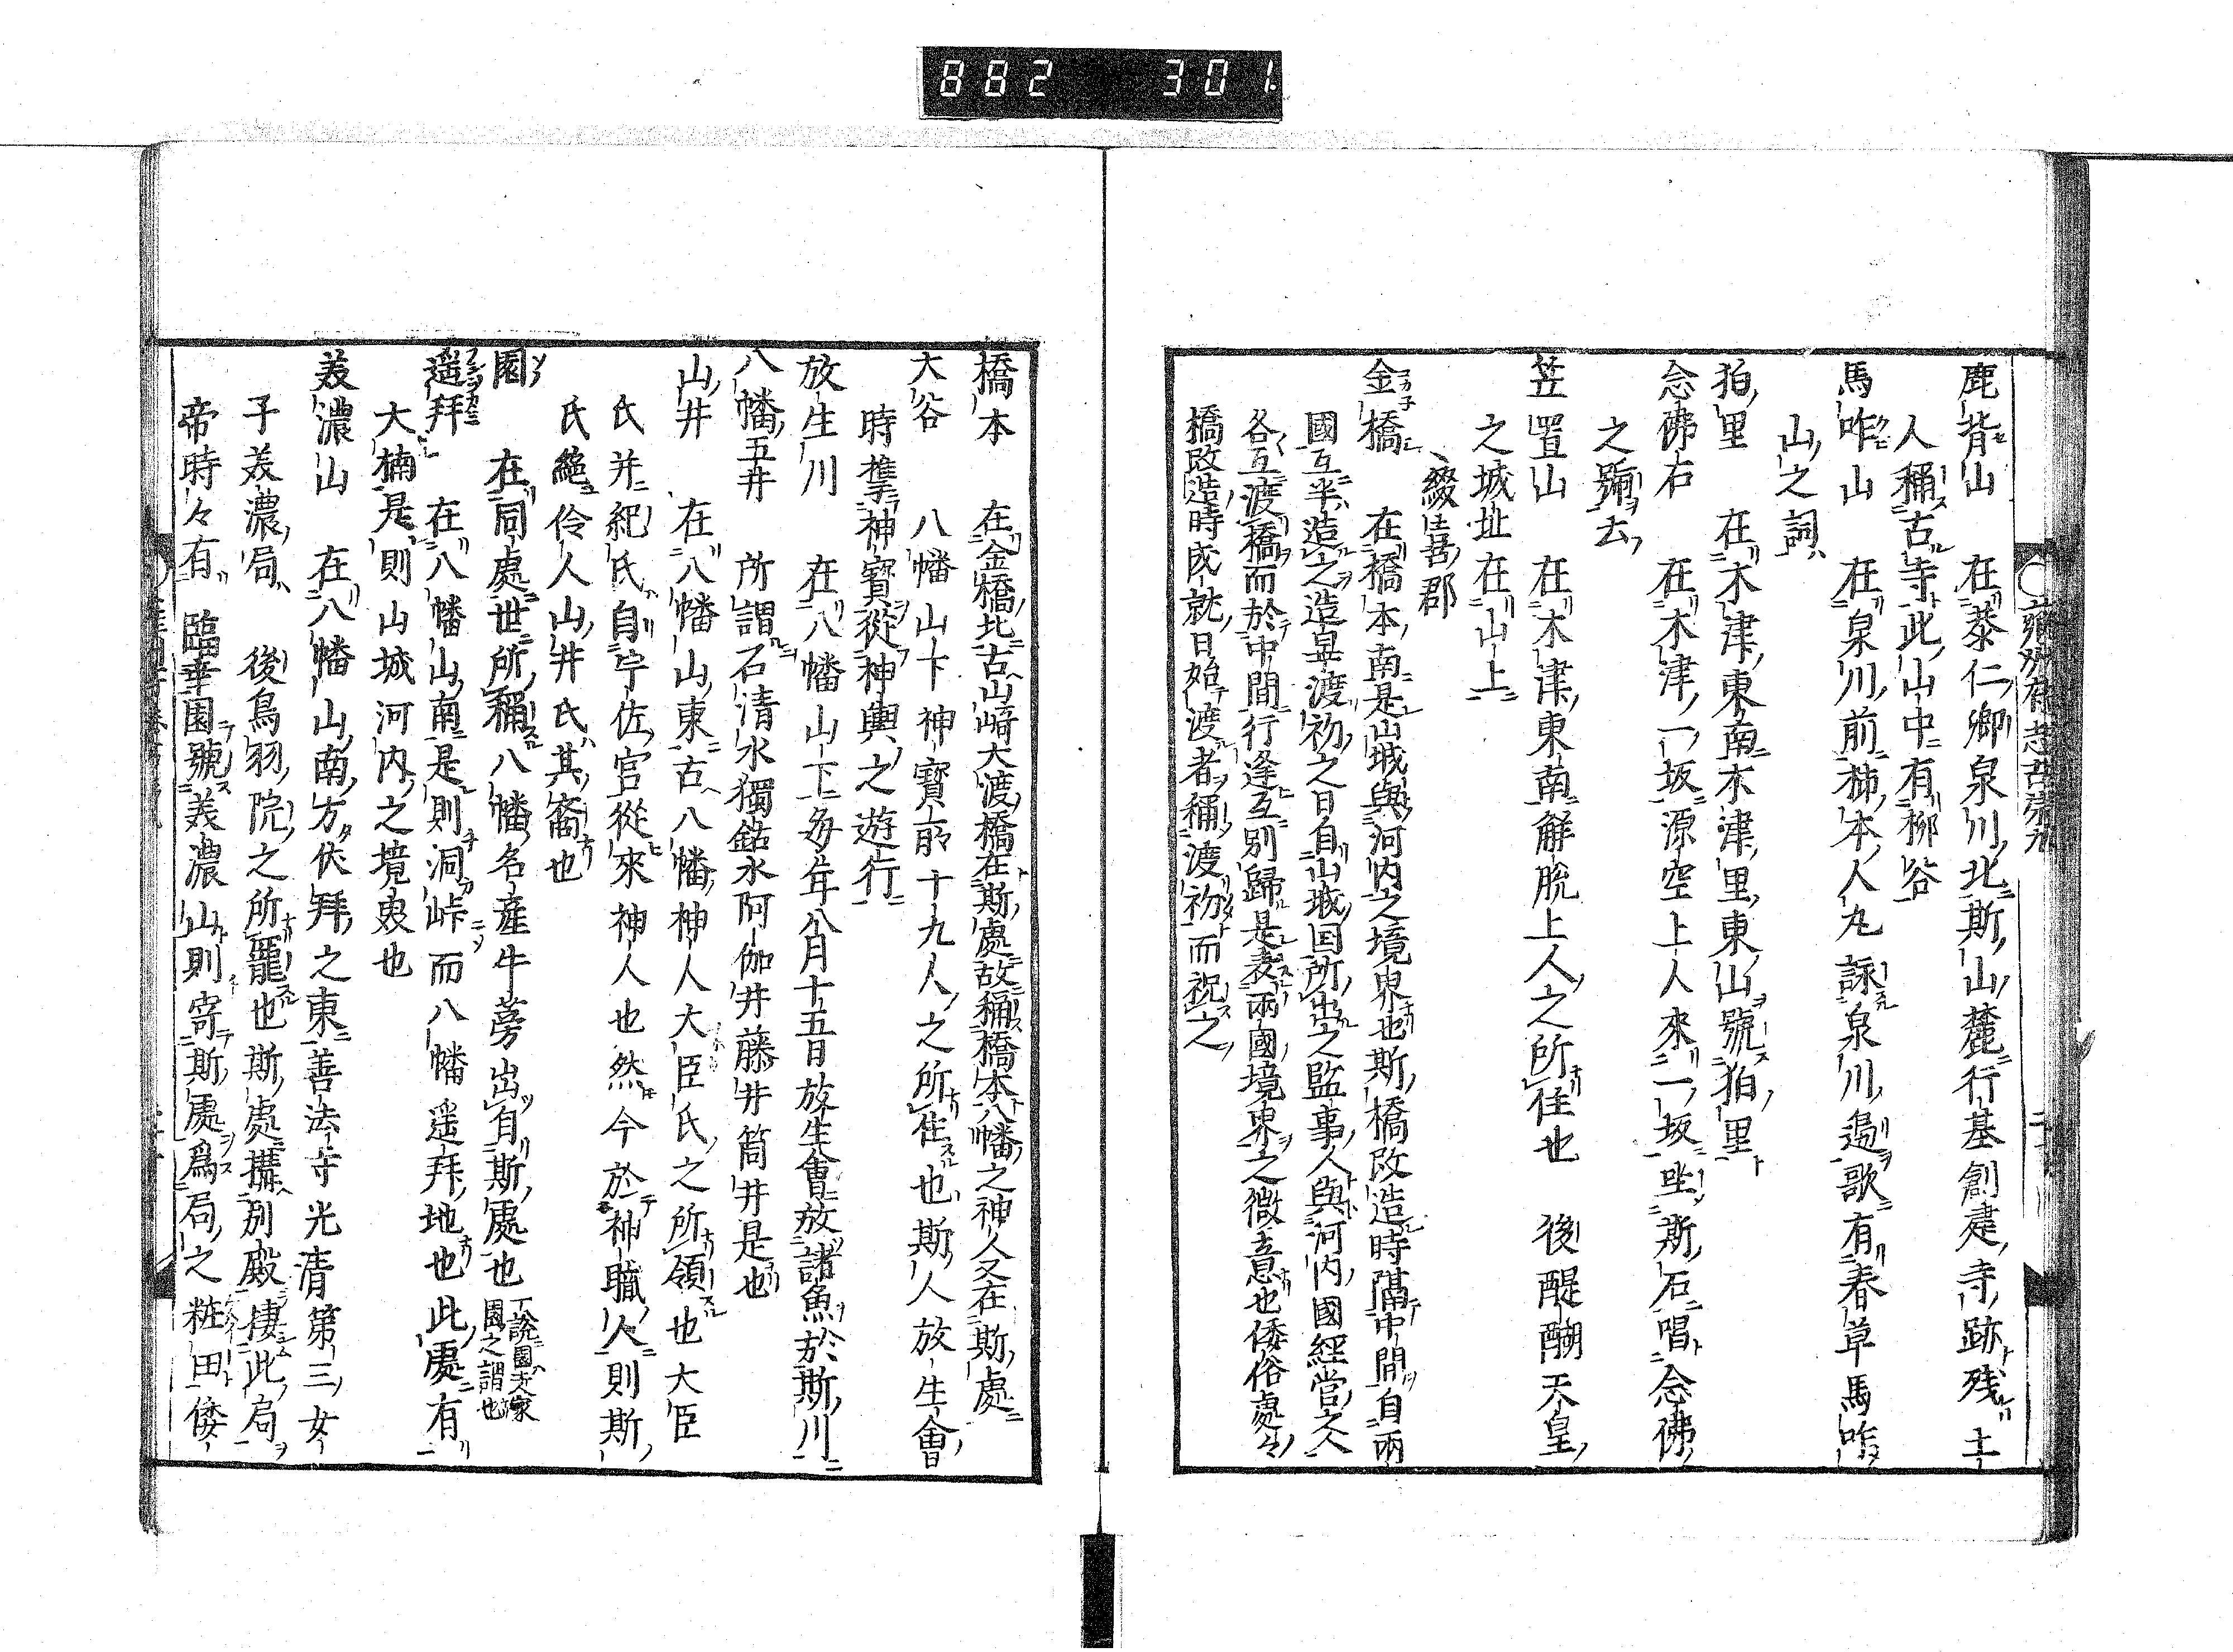 882 301.
鹿背山 在恭仁卿泉川北斯山麓行基創建寺跡残土
人稱古寺此山中有柳谷
馬咋山 在泉川前柿本人丸詠泉川邉歌有春草馬咋
山之詞
狛里 在木津東南木津里東山號狛里
念佛石 在木津一坂源空上人來一坂坐斯石唱念佛
之號去
笠置山 在木津東南解脱上人之所住也 後醍醐天皇
之城址在山上
綴喜郡
金橋 在橋本南是山城與河内之境界也斯橋改造時隔中間自兩
國互半造之造畢渡初之日自山城国所出之監事人與河内國經営之人
各互渡橋而於中間行逢互別歸是表兩國境界之微意也倭俗處々
橋改造時成就日始渡者稱渡初而祝之
橋本 在金橋北古山﨑大渡橋在斯處故稱橋本八幡之神人又在斯處
大谷 八幡山下神寶所十九人之所住也斯人放生會
時携神寶從神輿之遊行
放生川 在八幡山下毎年八月十五日放生會放諸魚於斯川
八幡五井 所謂石清水獨鈷水阿伽井藤井筒井是也
山井 在八幡山東古八幡神人大臣氏之所領也大臣
氏并紀氏自宇佐宮從來神人也然今於神職人則斯
氏絶伶人山井氏其裔也
園 在同處世所稱八幡名産牛蒡出自斯處也 一説園天家
園之謂也
遥拜 在八幡山南是則洞峠而八幡遥拜地也此處有
大楠是則山城河内之境界也
美濃山 在八幡山南方伏拜之東善法寺光清第三女
子美濃局 後鳥羽院之所寵也斯處搆別殿棲此局
帝時々有 臨幸園號美濃山則寄斯處爲局之粧田倭